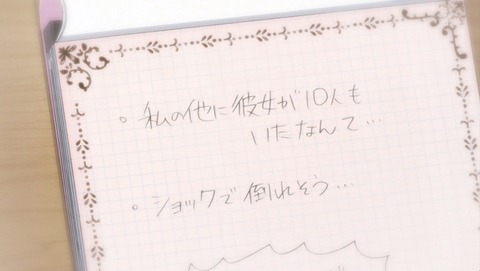 。私の他に彼女が10人も
いたなんて…
。ショックで倒れそう…